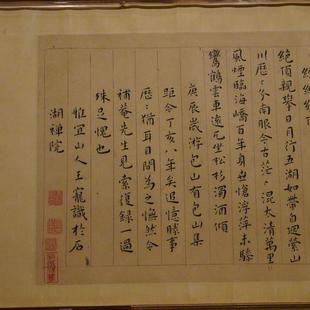 絕頂親舉日月行五湖如帶自迴縈山
川歷〻分南服今古茫〻混太清萬里
風煙臨海嶠百年身世愴浮萍未驂
鸞鶴雲車遠兀坐松杉濁酒傾
庚辰歲游包山有包山集
距今丁亥八年矣追憶勝事
歷〻猶耳目間為之憮然今
補菴先生見索復録一過
殊足愧也
雅宜山人王寵識於石
湖禪院